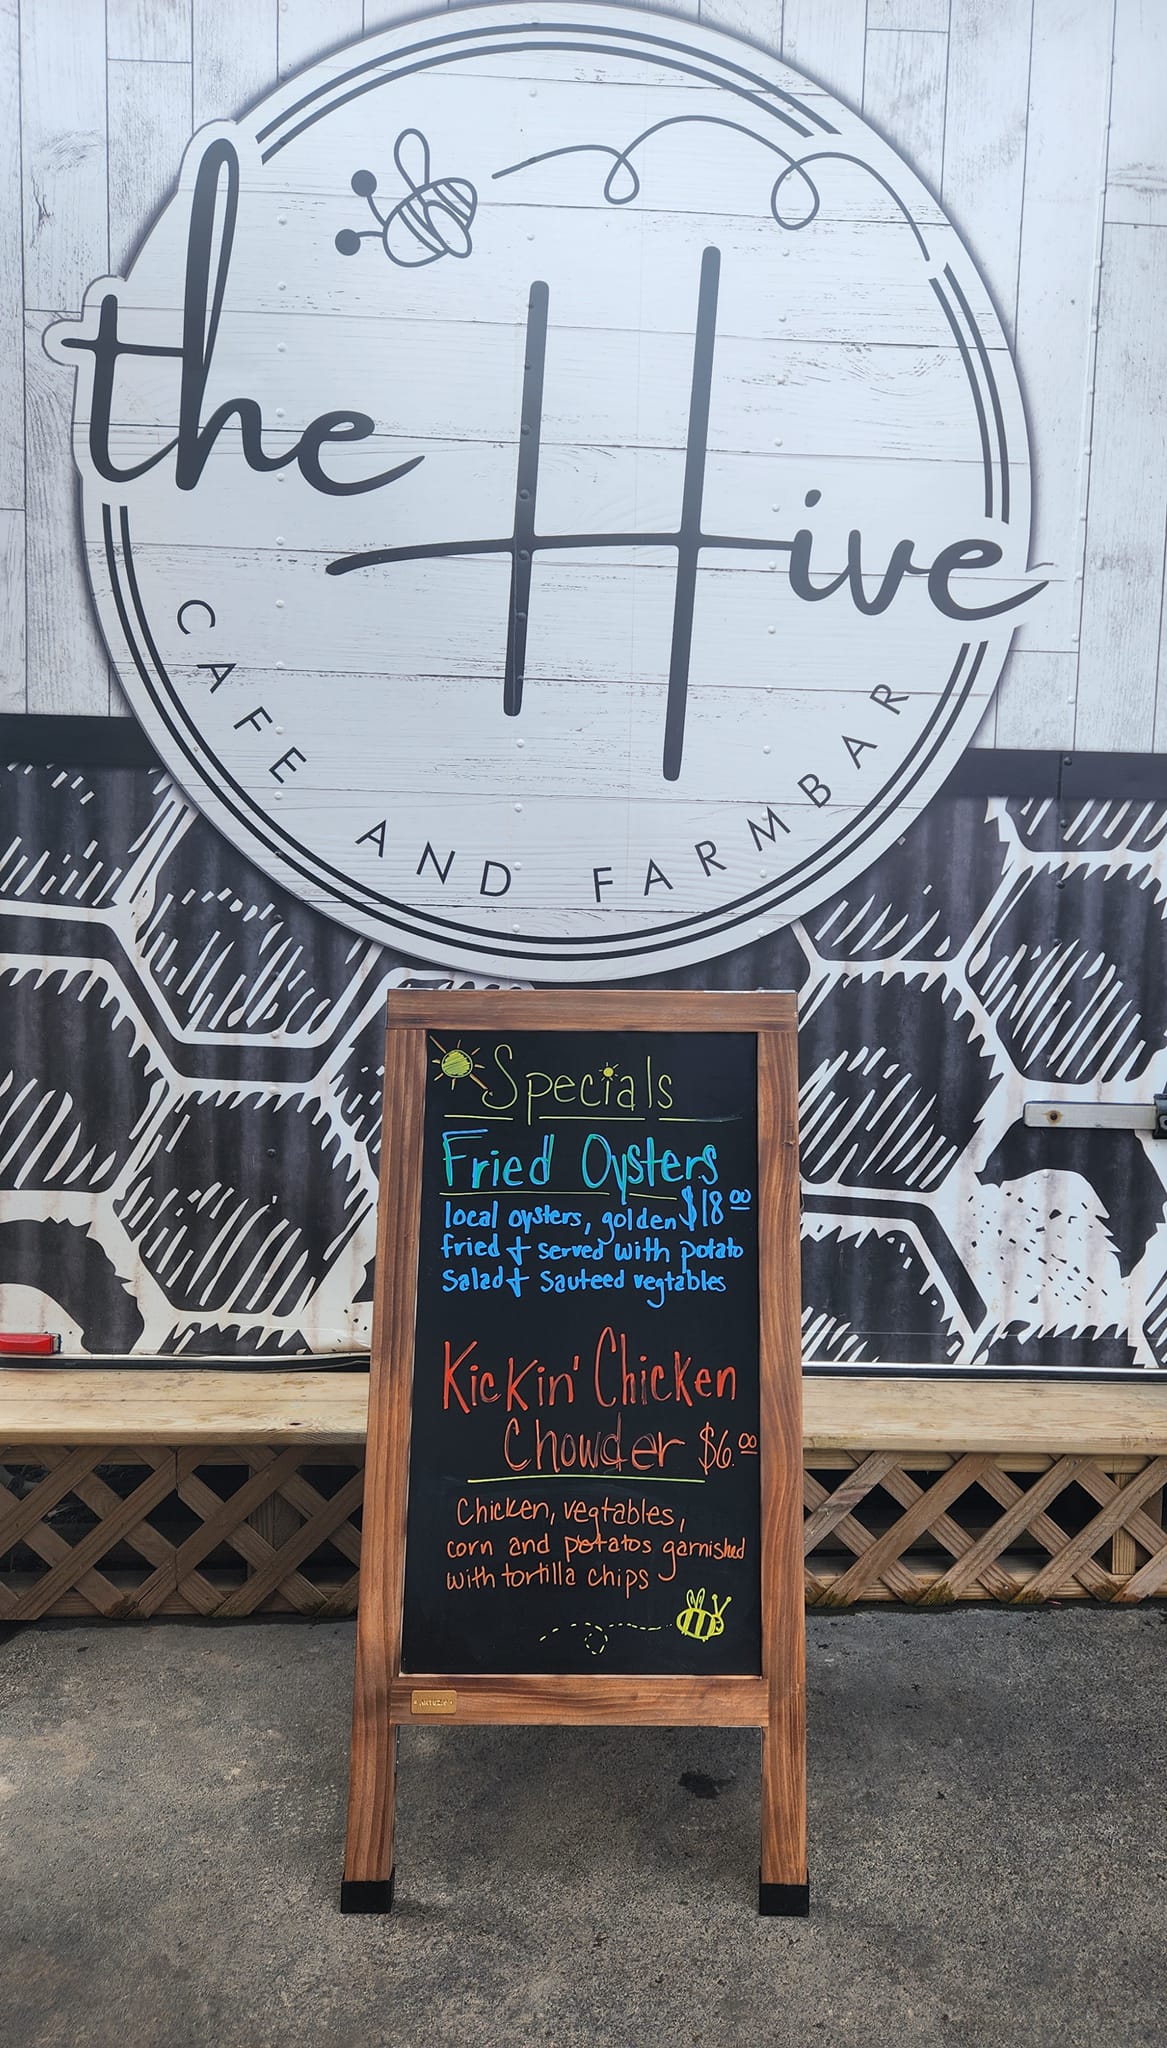 the Hive
CAFE AND FARMBAR
Specials
Fried Oysters
local oysters, golden $18.00
fried + served with potato
Salad + Sauteed vegtables
Kickin' Chicken
Chowder $6.00
Chicken, vegtables,
corn and potatos garnished
with tortilla chips